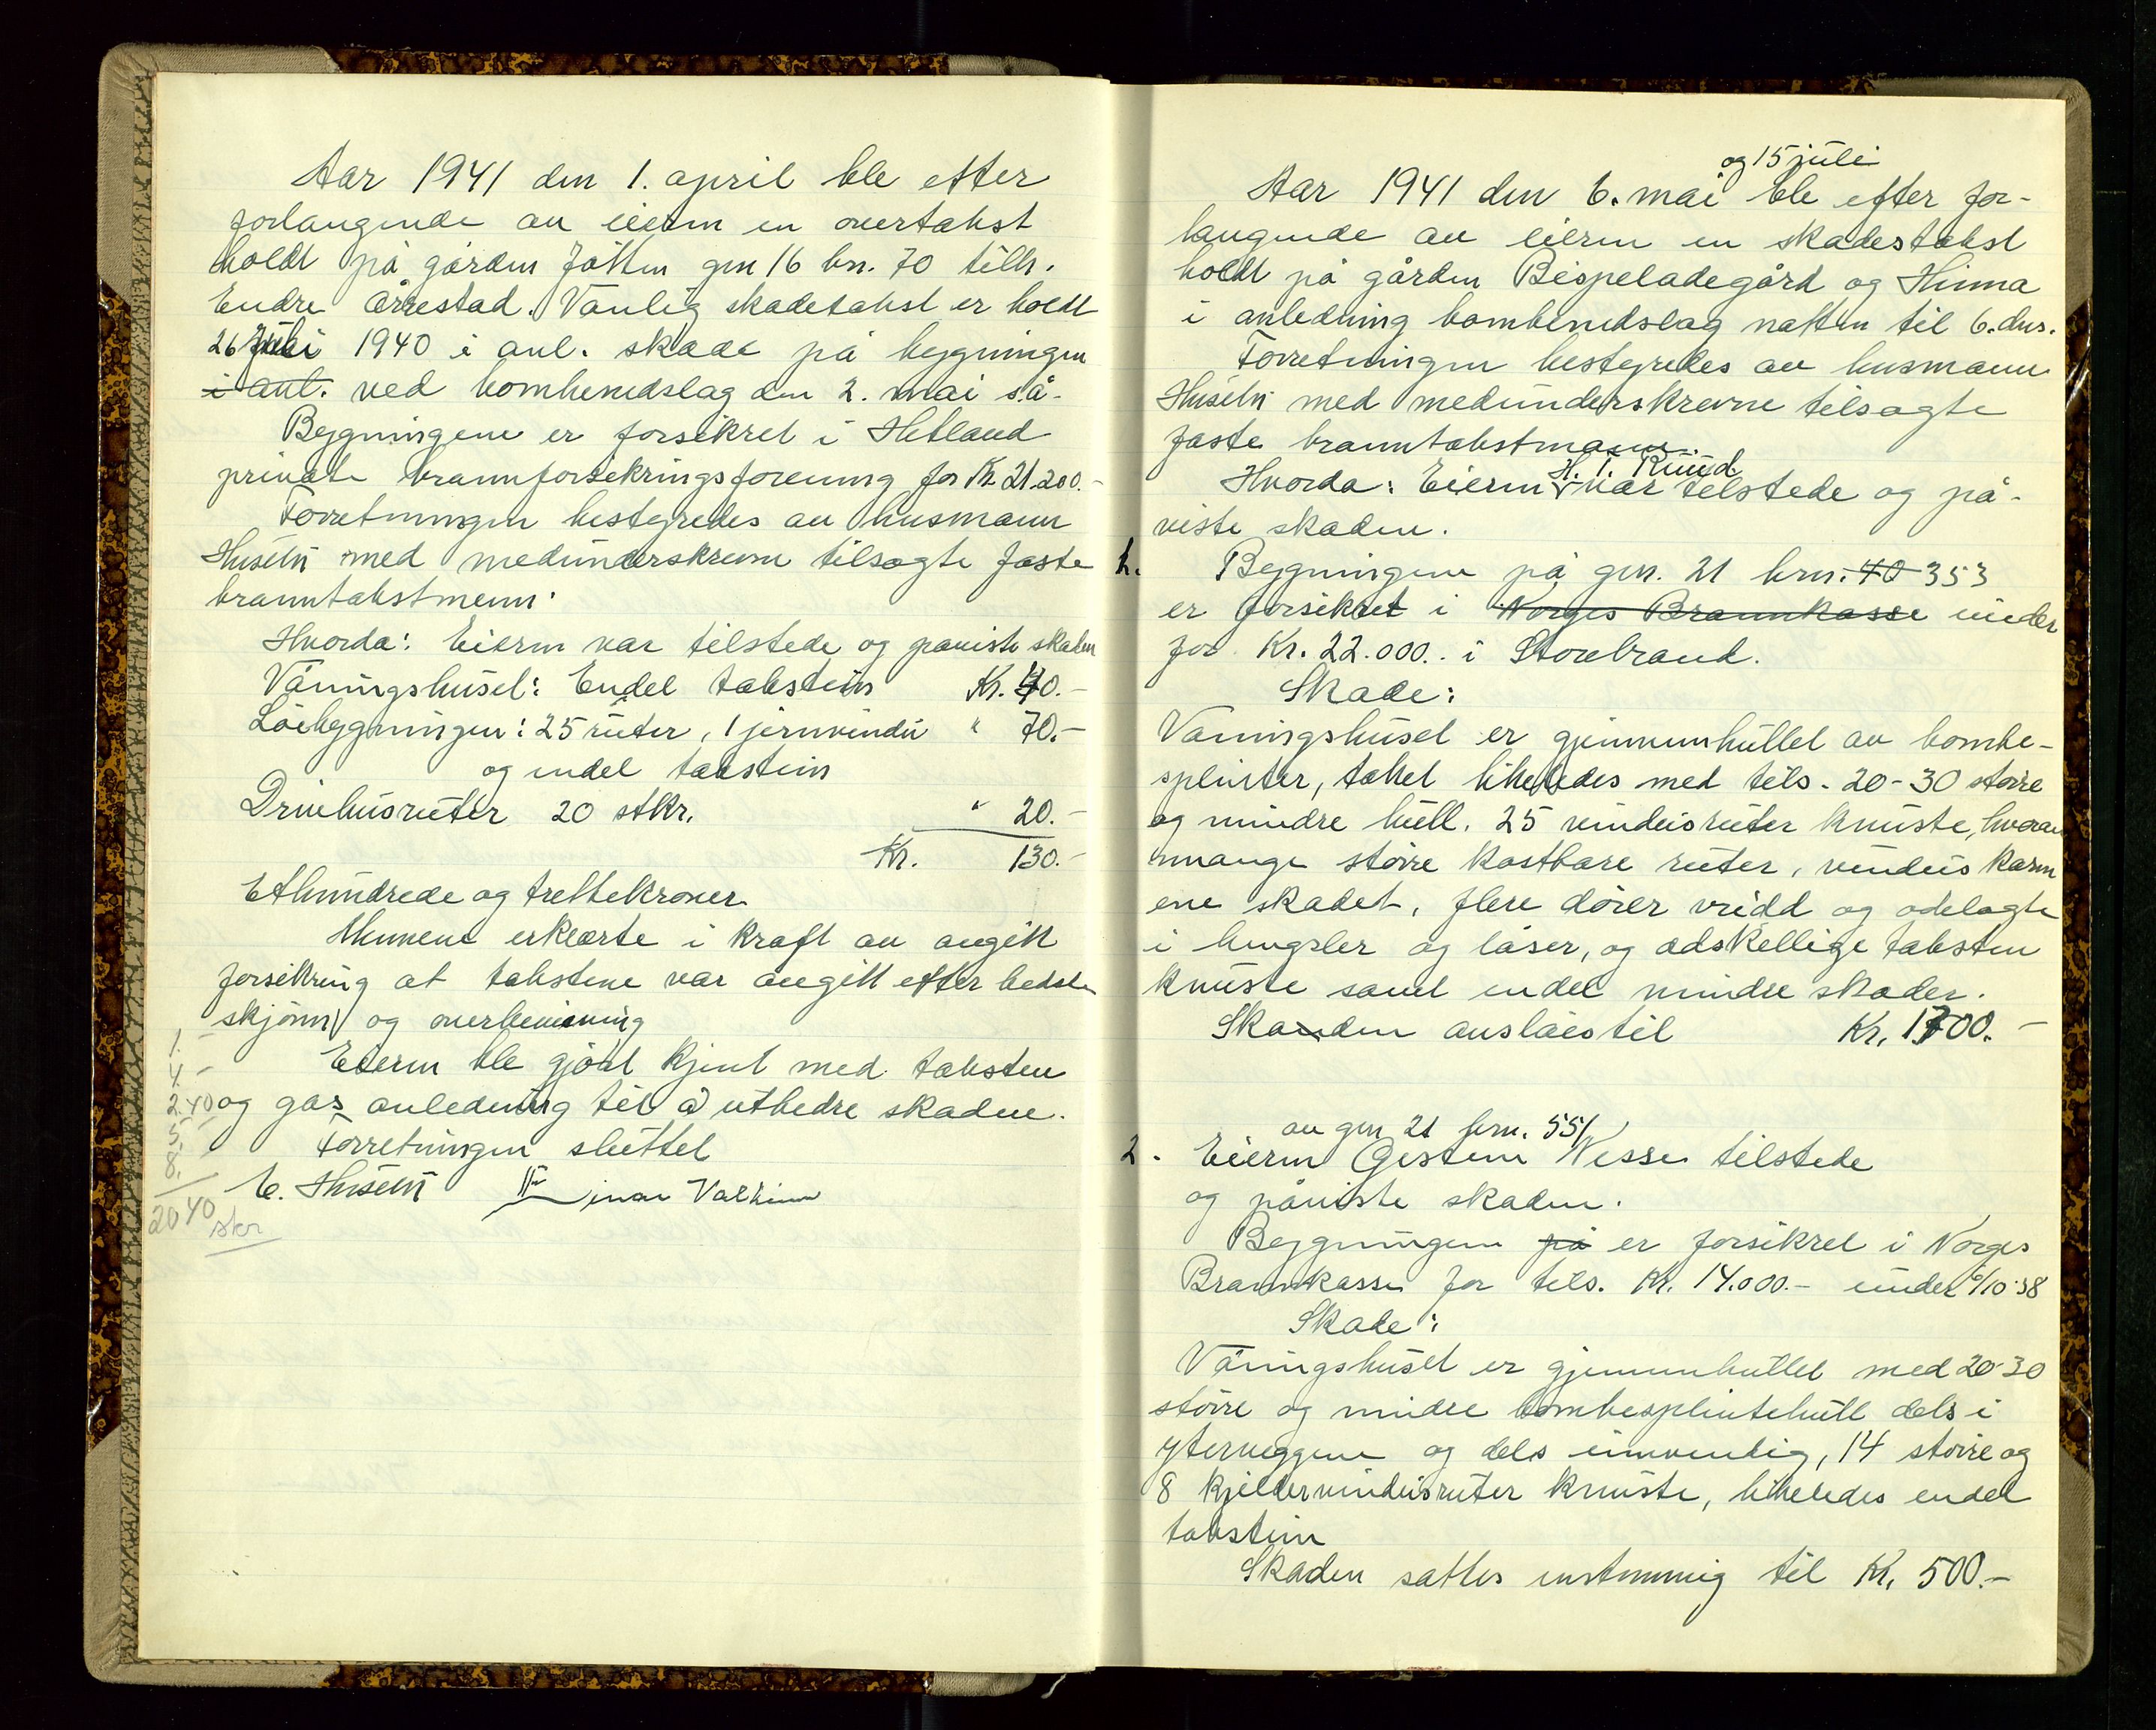 Aar 1941 den 1. april ble efter
forlangende av eieren en overtakst
holdt på gården Jåtten grn 16 brn. 70 tilh.
Endre Orrestad. Vanlig skadetakst er holdt
26 Juli 1940 i anl. skade på bygningen
i anl. ved bombenedslag den 2. mai s.å.
Bygningene er forsikret i Hetland
private brannforsikringsforening for Kr. 21.200.-
Forretningen bestyredes av husmann
Husebø med medunderskrevne tilsagte faste
branntakstmenn.
Hvorda: Eieren var tilstede og paaviste skaden
Våningshuset: Endel takstein Kr. 40.-
Löebygningen: 25 ruter, 1 jernvindu " 70.-
og endel takstein
Drivhusruter 20 stkr. " 20.-
Kr. 130.-
Ethundrede og trettekroner
Mennene erklærte i kraft av avgitt
forsikring at takstene var avgitt efter bedste
skjønn og overbevisning
Eieren ble gjort kjent med taksten
og gas anledning til å utbedre skaden.
Forretningen sluttet
Einar Valheim
1. -
4. -
2.40
5. -
8. -
20 40
skr
og 15 juli
Aar 1941 den 6. mai ble efter for-
langende av eieren en skadestakst
holdt på gården Bispeladegård og Hinna
i anledning bombenedslag natten til 6. ds.
Forretningen bestyredes av husmann
Husebø med medunderskrevne tilsagte
faste branntakstmenn.
H. I. Ruud
Hvorda: Eieren var tilstede og på-
viste skaden.
1. Bygningene på grn. 21 brn. 40 353
er forsikret i Norges Brannkasse under
for Kr. 22.000.. i Storebrand.
Skade:
Våningshuset er gjennemhullet av bombe-
splinter, taket likeledes med tils. 20-30 større
og mindre hull. 25 vindusruter knuste, hvorav
mange større kostbare ruter, vindus karm
ene skadet, flere dører vridd og ødelagte
i hengsler og låser, og adskellige taksten
knuste samt endel mindre skader.
Skaden anslåes til Kr. 1700.-
av grn 21 brn. 551
2. Eieren Gesten Nesse tilstede
og påviste skaden.
Bygningene på er forsikret i Norges
Brannkasse for tils. Kr. 14.000.- under 6/10-38
Skade:
Våningshuset er gjennemhullet med 20-30
større og mindre bombesplintehull dels i
yterveggene og dels innvendig, 14 større og
8 kjeldervindusruter knuste, likeledes endel
takstein
Skaden sattes enstemmig til Kr. 500.-